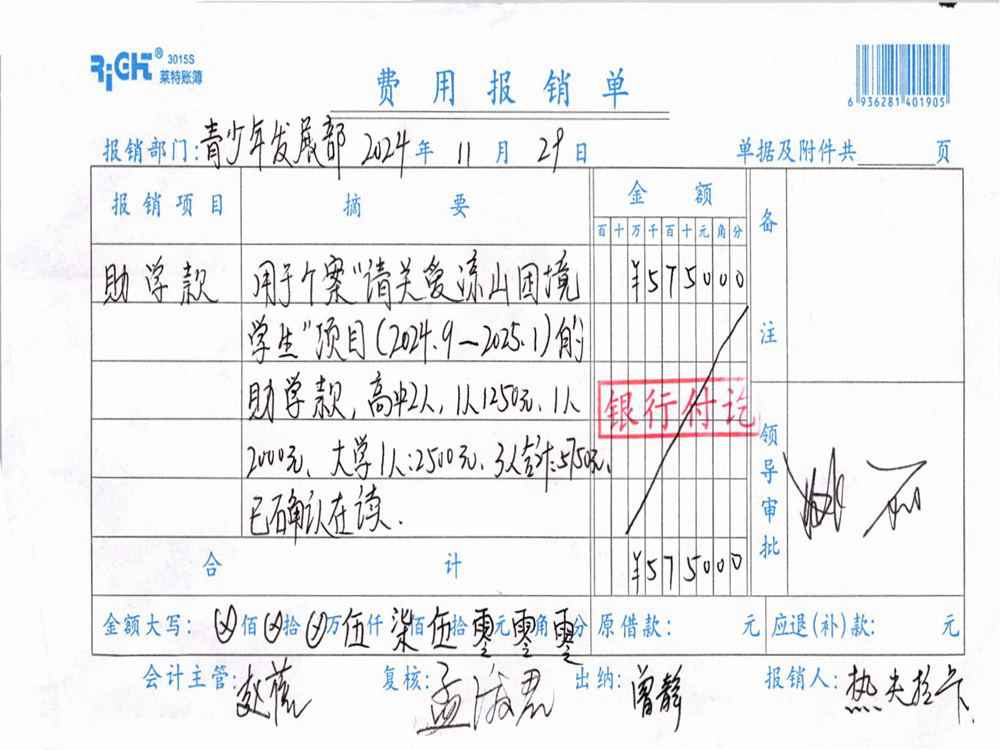 RiGHT® 3015S
莱特账簿
费用报销单
6 936281 401905
报销部门:青少年发展部 2024年 11月 29日 单据及附件共 页
报销项目 摘要 金额 备注
百十万千百十元角分
助学款 用于个案"请关爱凉山困境 ¥575000
学生"项目(2024.9—2025.1)的
助学款,高中2人,1人1250元、1人
银行付讫
2000元、大学1人:2500元、3人合计:5750元、
已确认在读.
领导审批
合计 ¥575000
金额大写: 佰 拾 万伍仟柒佰伍拾零元零角零分 原借款: 元 应退(补)款: 元
会计主管: 复核:孟淑君 出纳:曾静 报销人:热夫拉卡